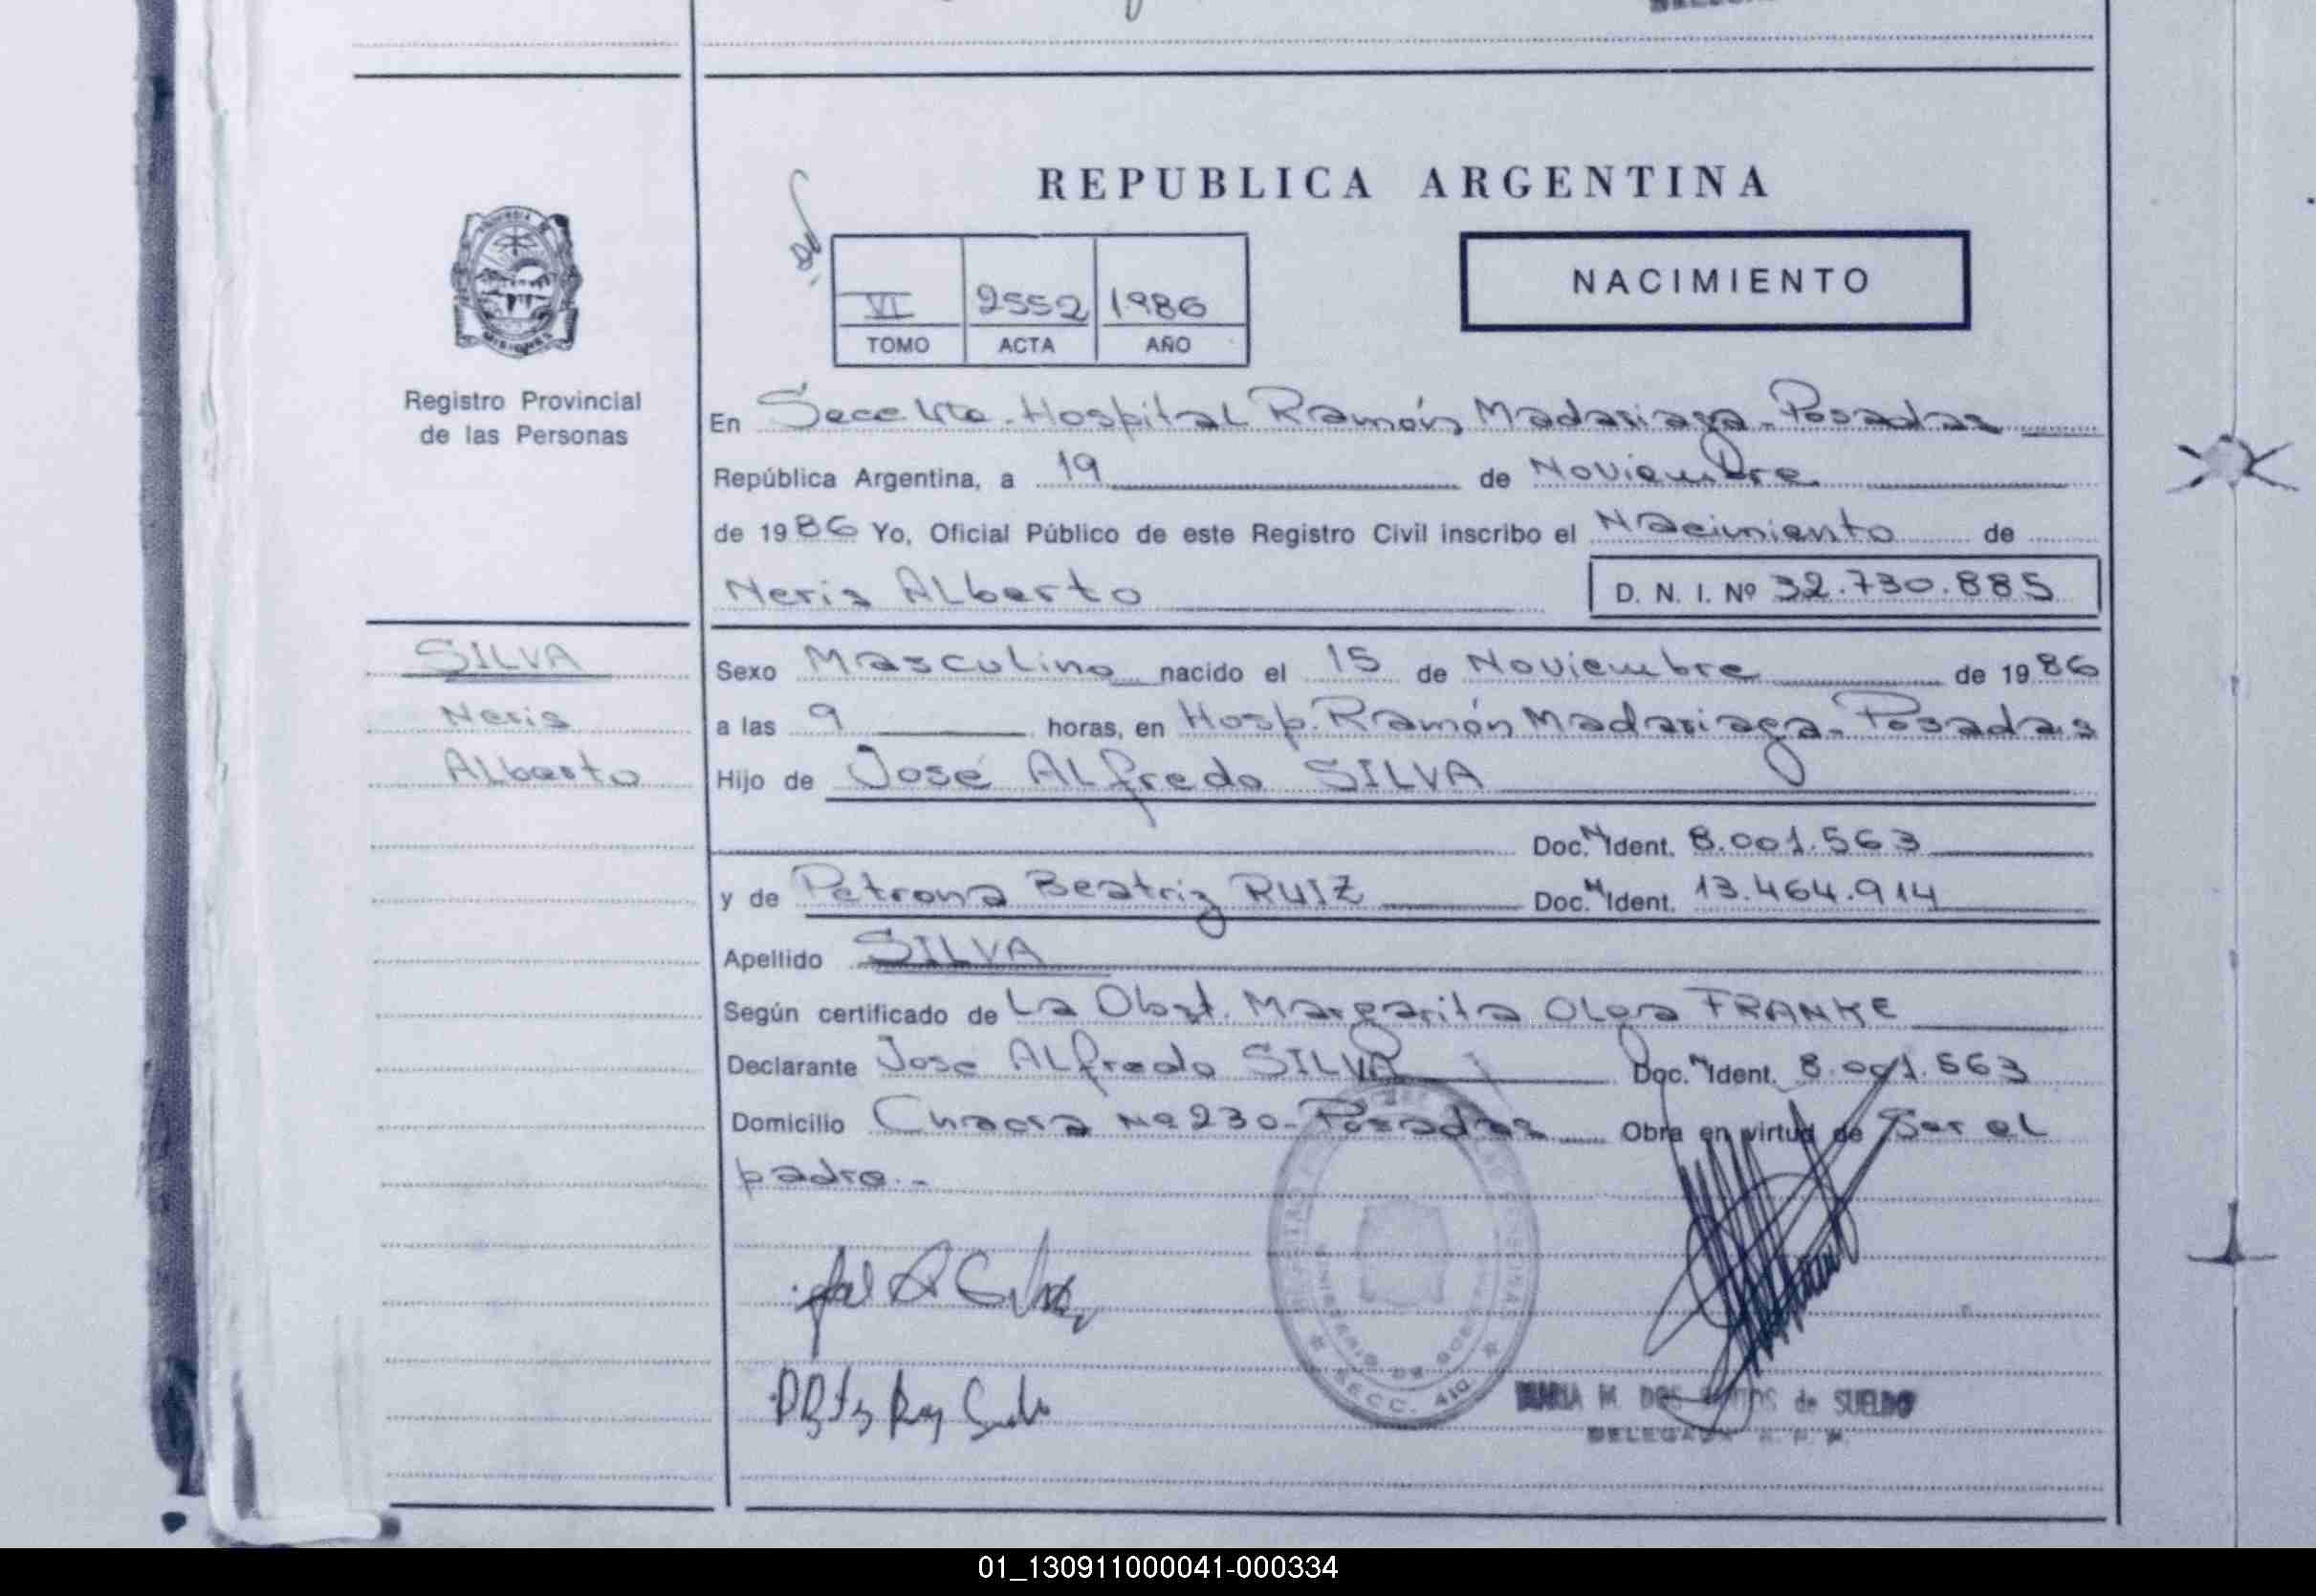 REPUBLICA ARGENTINA
NACIMIENTO
VI 2552 1986
TOMO ACTA AÑO
MISIONES
Registro Provincial
de las Personas
En Secc 4ta. Hospital Ramón Madariaga - Posadas
República Argentina, a 19 de Noviembre
de 1986 Yo, Oficial Público de este Registro Civil inscribo el Nacimiento de
Neris Alberto D. N. I. Nº 32.730.885
SILVA
Neris
Alberto
Sexo Masculino nacido el 15 de Noviembre de 1986
a las 9 horas, en Hosp. Ramón Madariaga - Posadas
Hijo de José Alfredo SILVA
Doc. N Ident. 8.001.563
y de Petrona Beatriz RUIZ Doc. N Ident. 13.464.914
Apellido SILVA
Según certificado de La Obst. Margarita Olga FRANKE
Declarante José Alfredo SILVA Doc. N Ident. 8.001.563
Domicilio Chacra Nº 230 - Posadas Obra en virtud de Ser el
padre.-
MINISTERIO DE GOBIERNO
SECC. 4ta
MARIA M. DOS SANTOS de SUELDO
DELEGADA R. P. P.
01_130911000041-000334